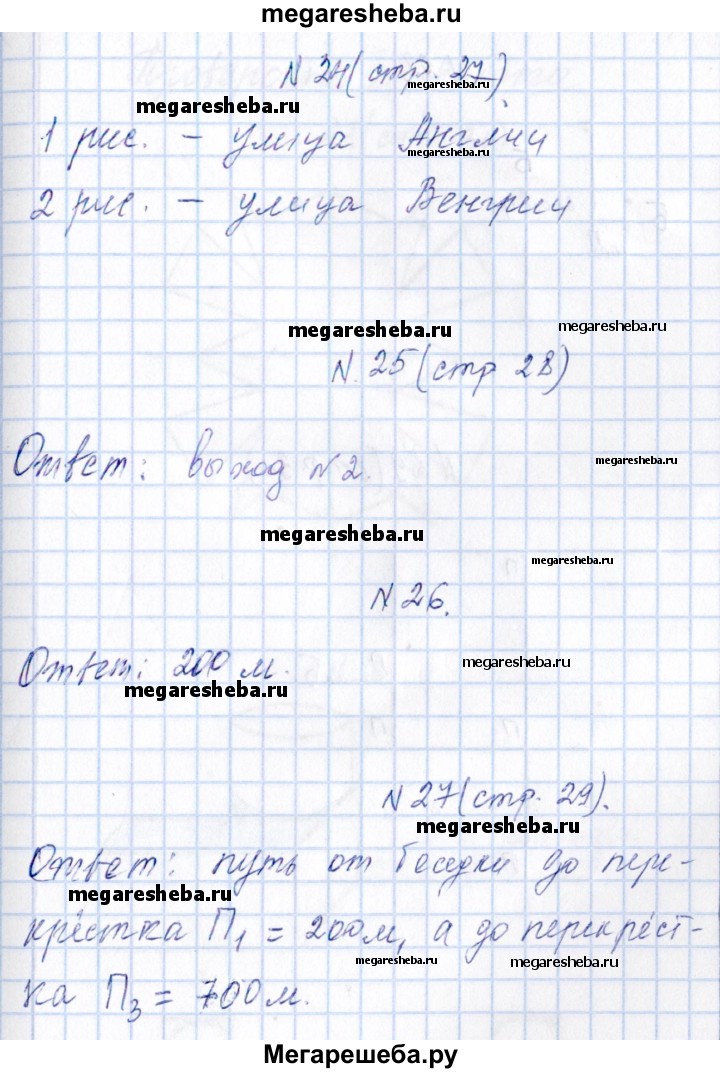 megaresheba.ru
N 24 (стр. 27)
megaresheba.ru
megaresheba.ru
1 рис. – улица Англии
megaresheba.ru
2 рис. – улица Венгрии
megaresheba.ru
megaresheba.ru
N 25 (стр 28)
Ответ: выход N 2.
megaresheba.ru
megaresheba.ru
megaresheba.ru
N 26.
Ответ: 200 м.
megaresheba.ru
megaresheba.ru
N 27 (стр. 29).
megaresheba.ru
Ответ: путь от беседки до пере-
megaresheba.ru
крёстка П1 = 200м, а до перекрёст-
megaresheba.ru
megaresheba.ru
ка П3 = 700м.
Мегарешеба.ру